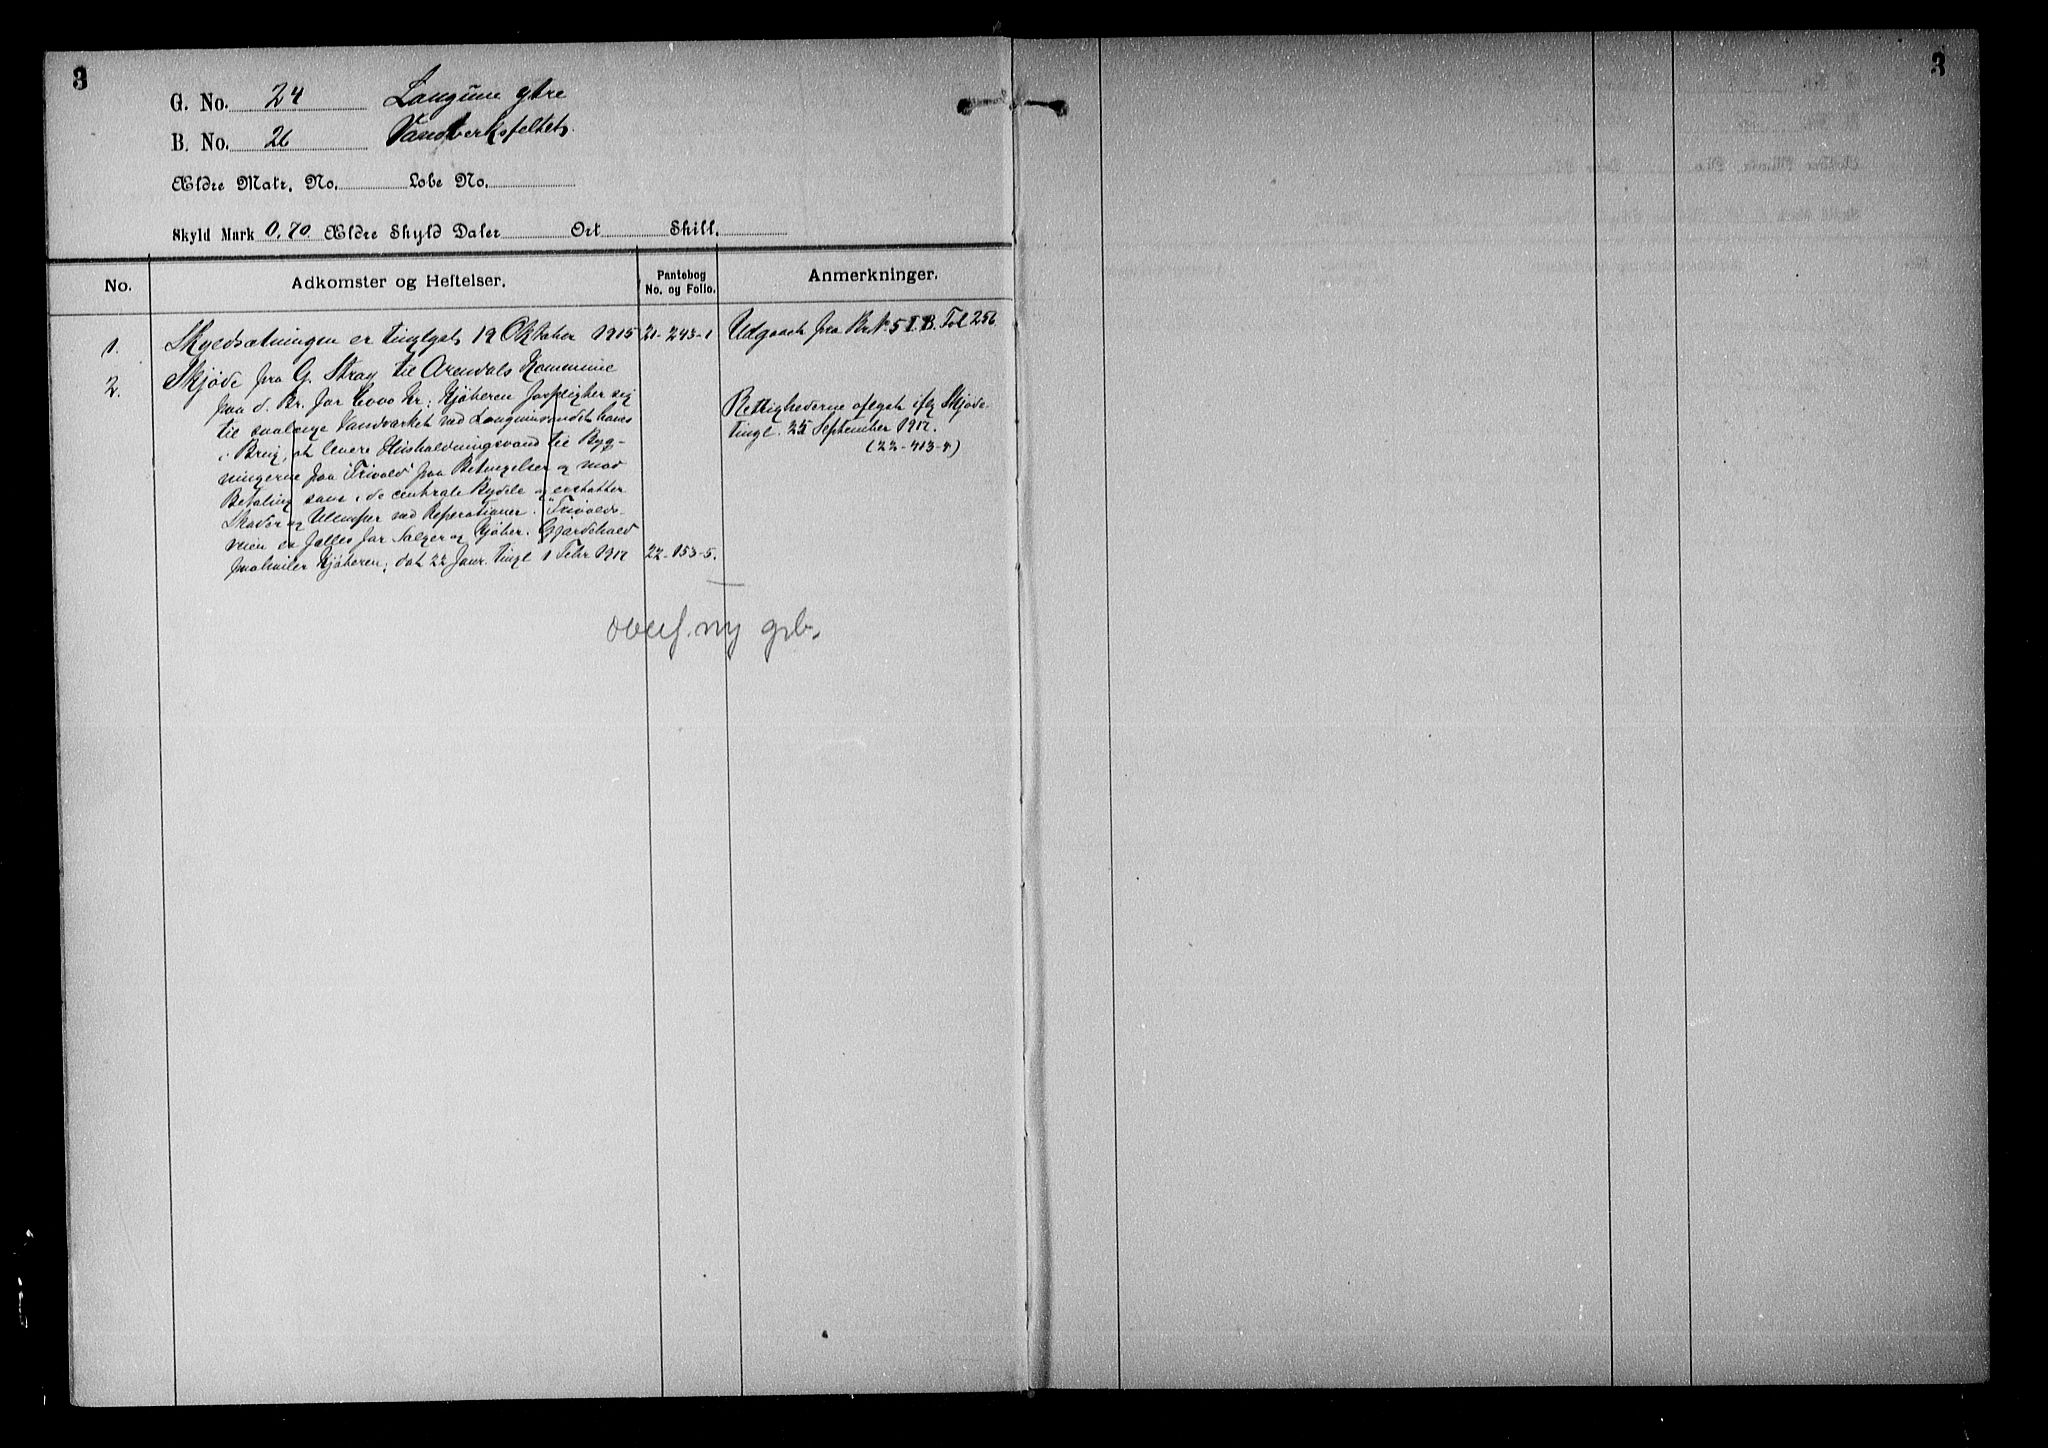 3
3
G. No. 24 Langum ytre
B. No. 26 Vandverksfeltet
Ældre Matr. No. Løbe No.
Skyld Mark 0,70 Ældre Skyld Daler Ort Skill.
No. Adkomster og Heftelser. Pantebog No. og Folio. Anmerkninger.
1. Skyldsætningen er tinglyst 19 Oktober 1915 21-243-1 Udgaaet fra Br.N 5 I.B. Fol 256
2. Skjøde fra G. Stray til Arendals Kommune
paa d. Br. for 6000 Kr; Kjøberen forpligter sig
til saalænge Vandværket ved Langumvandet haves
i Brug, at levere Husholdningsvand til Byg-
ningerne paa "Trivold" paa Betingelser og mod
Betaling som i de centrale Bydele og erstatter
Skader og Ulemper ved Reperationer. "Trivolds
veien er fælles for Sælger og Kjøber. Gjærdehold
paahviler Kjøberen; dat 22 Janr. tingl 1 Febr 1917 22-153-5.
Rettighederne aflyst iflg Skjøde
tingl. 25 September 1917.
(22-413-)
overf. ny grb.